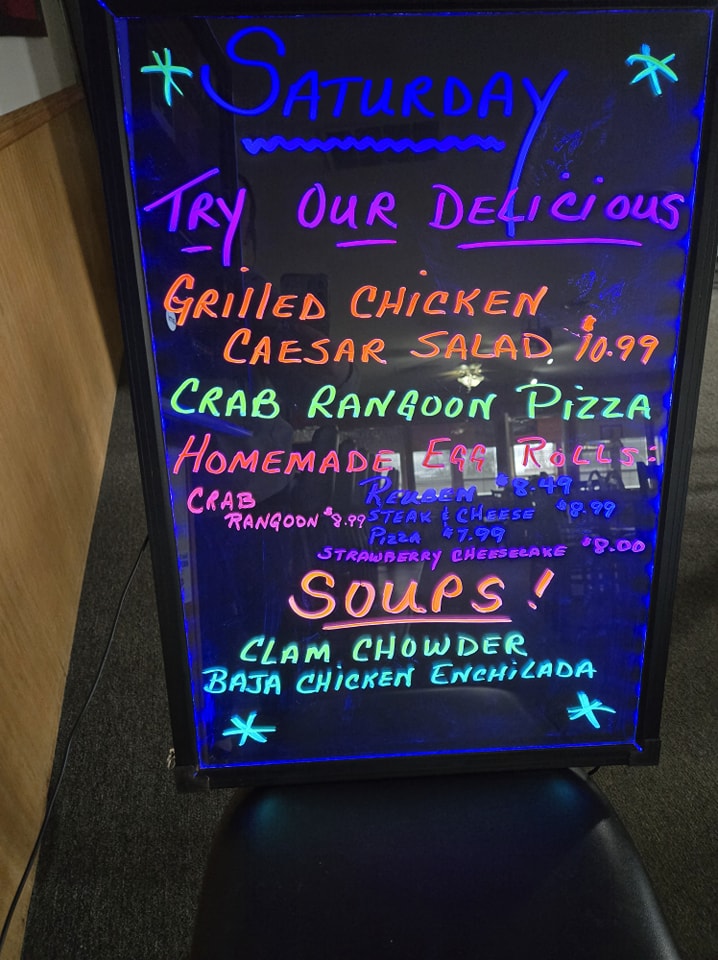 SATURDAY
TRY OUR DELICIOUS
GRILLED CHICKEN
CAESAR SALAD $10.99
CRAB RANGOON PIZZA
HOMEMADE EGG ROLLS:
CRAB
RANGOON $8.99
REUBEN $8.49
STEAK & CHEESE $8.99
PIZZA $7.99
STRAWBERRY CHEESECAKE $8.00
SOUPS!
CLAM CHOWDER
BAJA CHICKEN ENCHILADA